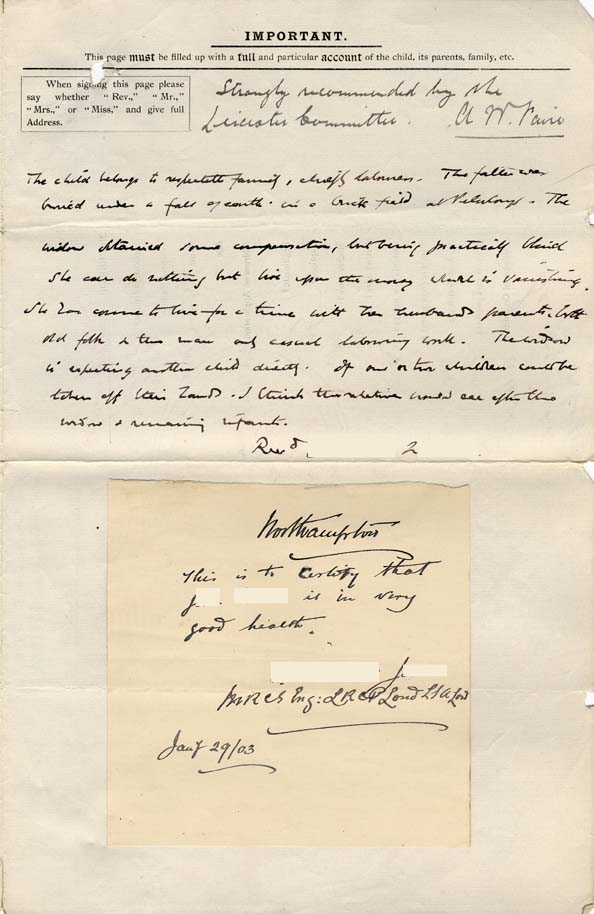 IMPORTANT.
This page must be filled up with a full and particular account of the child, its parents, family, etc.
When signing this page please
say whether "Rev.," "Mr.,"
"Mrs.," or "Miss," and give full
Address.
Strongly recommended by the
Leicester Committee. A. W.
The child belongs to respectable family, chiefly labourers. The father was
buried under a fall of earth in a brick field at . The
widow obtained some compensation, but being practically blind
she can do nothing but live upon the money which is vanishing.
She has come to live for a time with her husband's parents, both
old folk & the man only casual labouring work. The widow
is expecting another child directly. If one or two children could be
taken off their hands. I think the relatives would see after the
widow & remaining infants.
2
Northampton
This is to certify that
J is in very
good health.
J
MRCS Eng: LRCP Lond LSA Lond
Jany 29/03